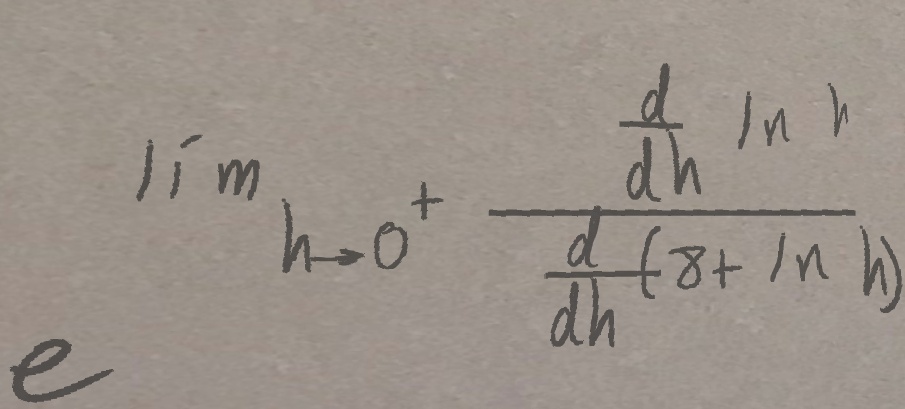 e^{\lim_{h \to 0^+} \frac{\frac{d}{dh} \ln h}{\frac{d}{dh}(8 + \ln h)}}